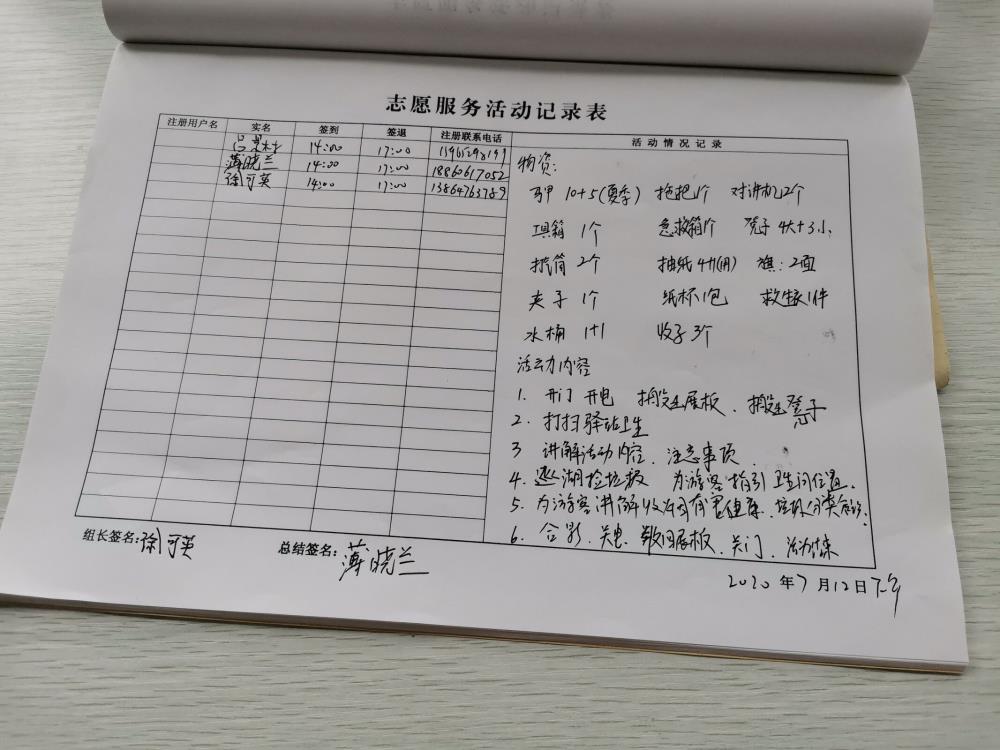 志愿服务活动记录表
注册用户名 实名 签到 签退 注册联系电话 活动情况记录
14:00 17:00
薄晓兰 14:00 17:00 18860617052
徐可英 14:00 17:00 13864763789
物资:
马甲 10+5(夏季) 拖把1个 对讲机2个
工具箱 1个 急救箱1个 凳子 4大+3小
2个 抽纸 旗:2面
夹子 1个 纸杯1包 救生衣1件
水桶 1+1 3个
活动内容
1. 开门 开电 搬出展板、搬出凳子
2. 打扫驿站卫生
3 讲解活动内容、注意事项
4. 巡湖捡垃圾 为游客指引卫生间位置.
5. 为游客讲解吸烟有害健康、垃圾分类知识.
6. 合影、关电、搬回展板、关门、活动结束
组长签名:徐可英 总结签名:薄晓兰
2020年7月12日下午